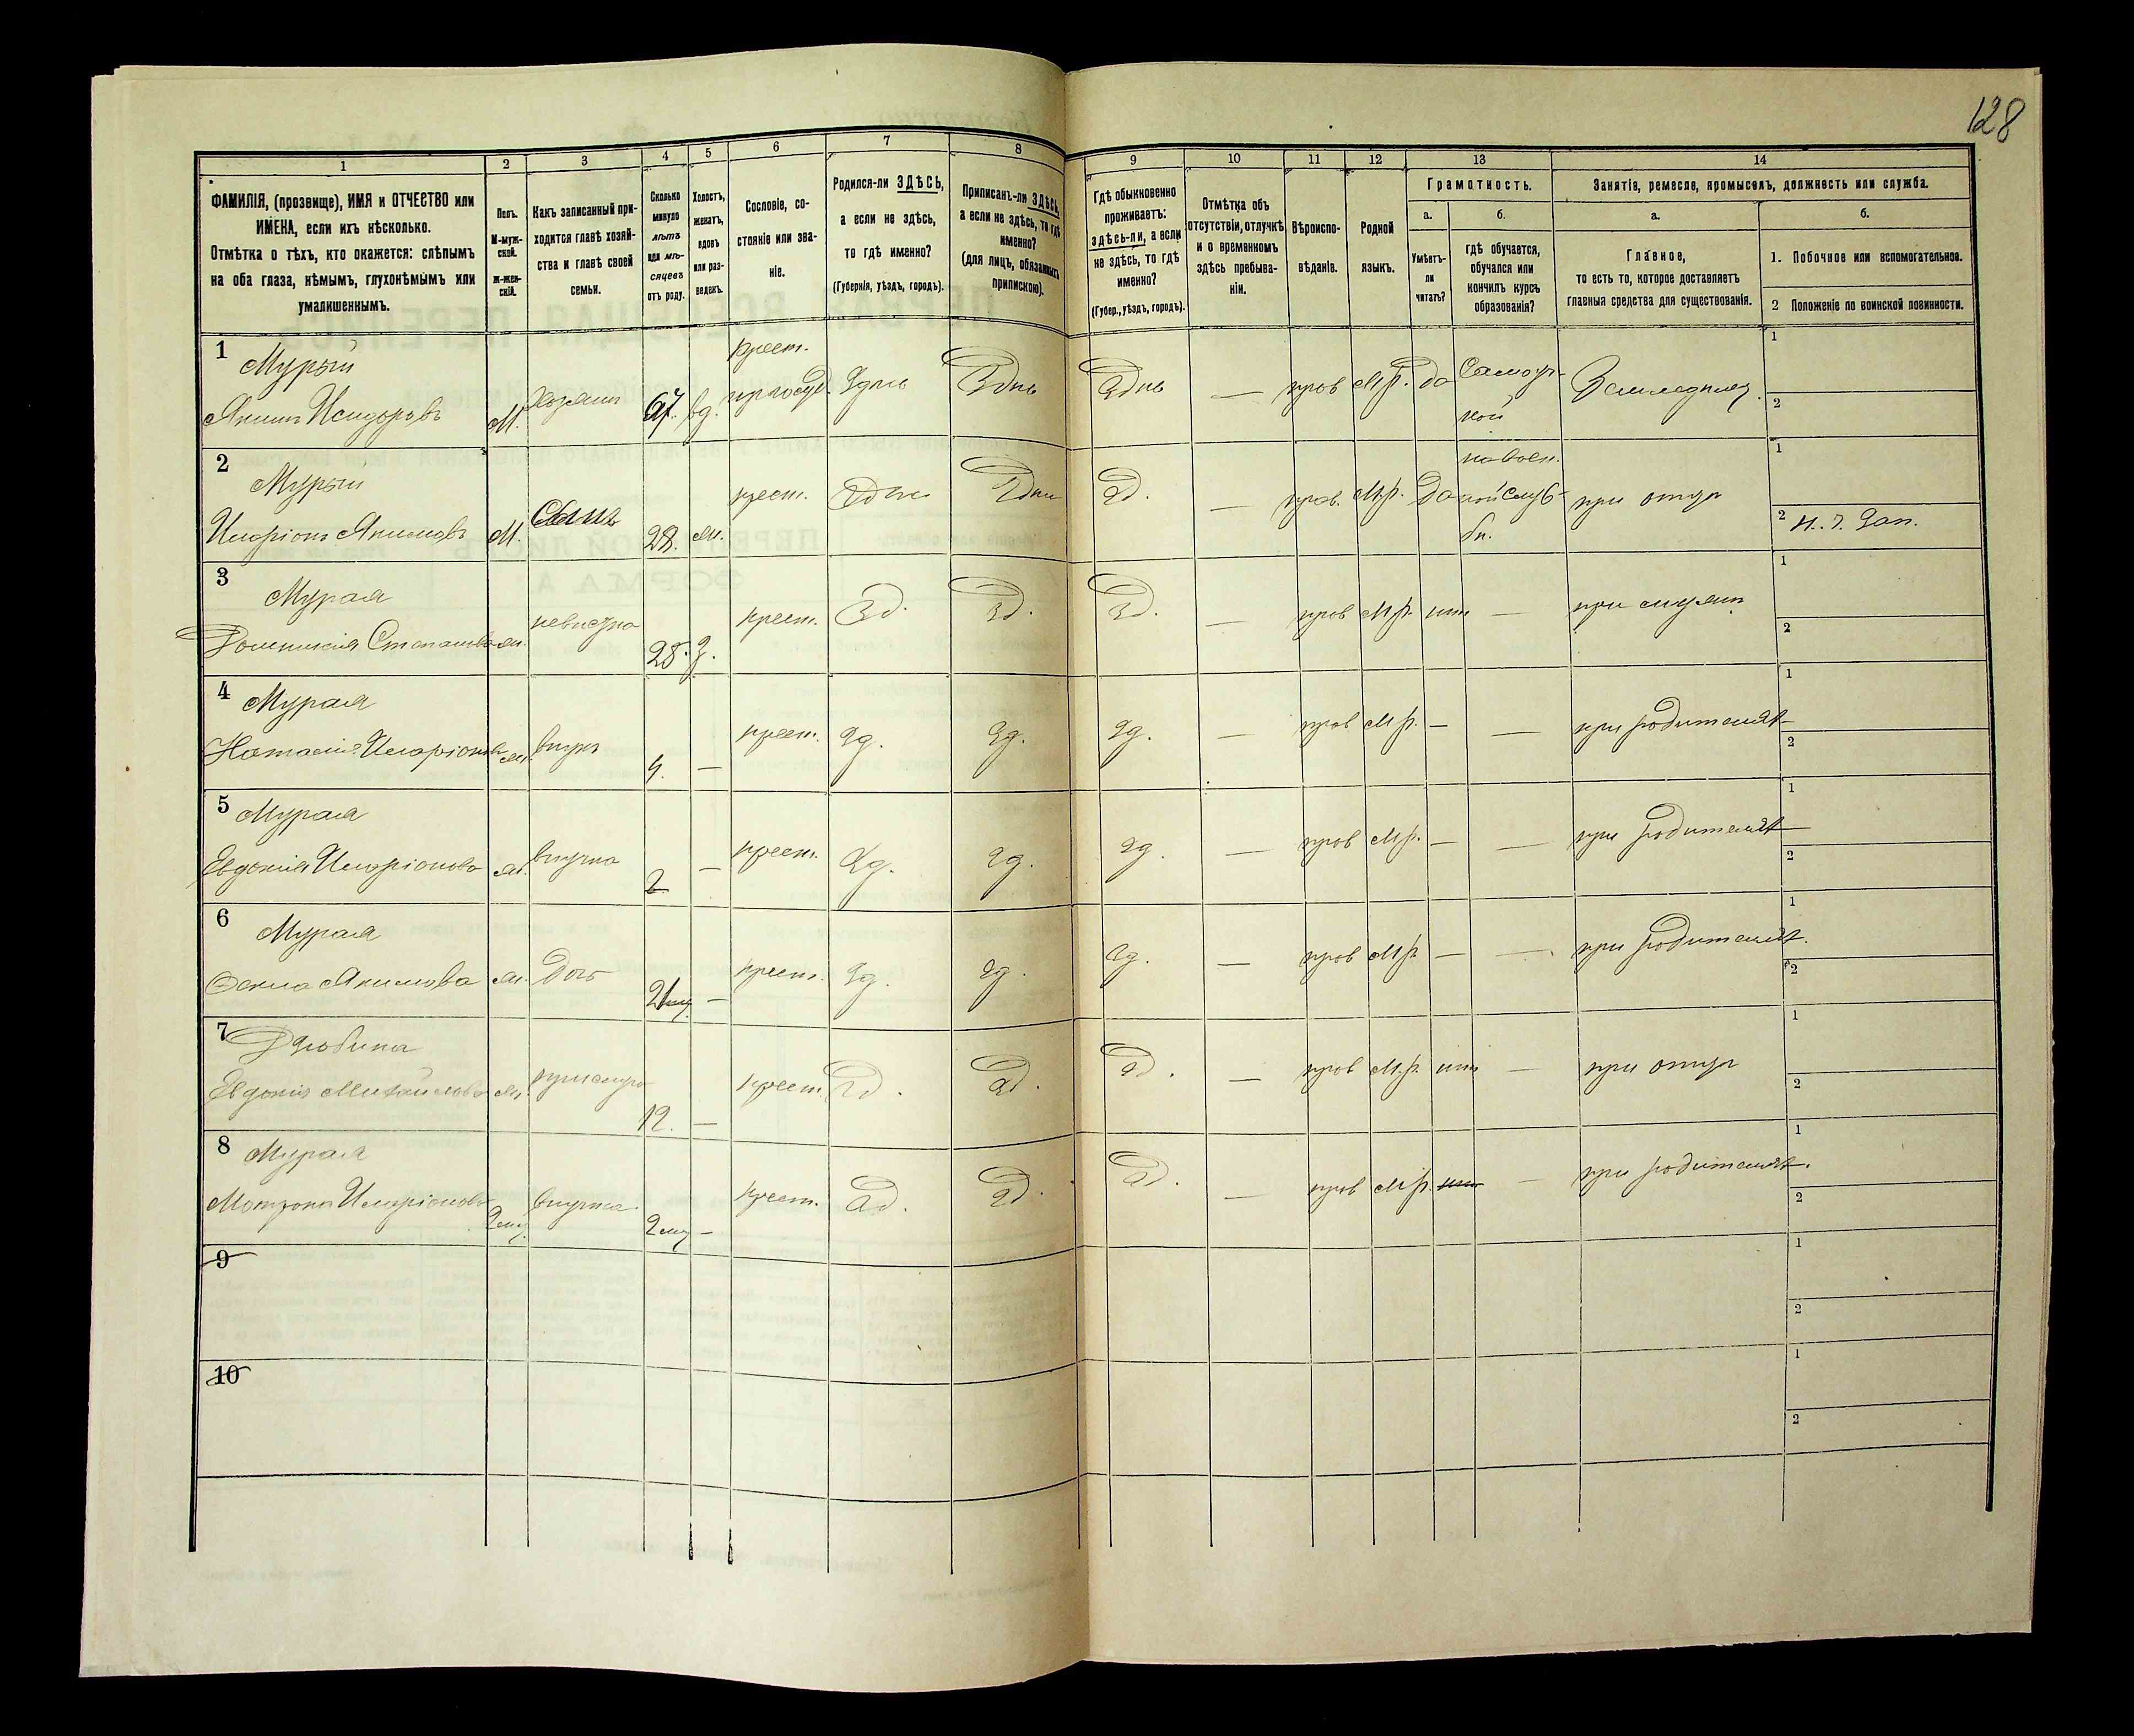 128
1 2 3 4 5 6 7 8 9 10 11 12 13 14
ФАМИЛІЯ, (прозвище), ИМЯ и ОТЧЕСТВО или
ИМЕНА, если ихъ нѣсколько.
Отмѣтка о тѣхъ, кто окажется: слѣпымъ
на оба глаза, нѣмымъ, глухонѣмымъ или
умалишеннымъ.
Полъ.
М-муж-
ской.
ж-жен-
скій.
Какъ записанный при-
ходится главѣ хозяй-
ства и главѣ своей
семьи.
Сколько
минуло
лѣтъ
или мѣ-
сяцевъ
отъ роду.
Холостъ,
женатъ,
вдовъ
или раз-
веденъ.
Сословіе, со-
стояніе или зва-
ніе.
Родился-ли ЗДѢСЬ,
а если не здѣсь,
то гдѣ именно?
(Губернія, уѣздъ, городъ).
Приписанъ-ли ЗДѢСЬ,
а если не здѣсь, то гдѣ
именно?
(для лицъ, обязанныхъ
припискою).
Гдѣ обыкновенно
проживаетъ:
здѣсь-ли, а если
не здѣсь, то гдѣ
именно?
(Губер., уѣздъ, городъ).
Отмѣтка объ
отсутствіи, отлучкѣ
и о временномъ
здѣсь пребыва-
ніи.
Вѣроиспо-
вѣданіе.
Родной
языкъ.
Грамотность.
а.
Умѣетъ-
ли
читать?
б.
гдѣ обучается,
обучался или
кончилъ курсъ
образованія?
Занятія, ремесло, промыселъ, должность или служба.
а.
Главное,
то есть то, которое доставляетъ
главныя средства для существованія.
б.
1. Побочное или вспомогательное.
2 Положеніе по воинской повинности.
1 Мурый крест. 1
Якимъ Исидоровъ М. Хозяинъ 67. вд. Здѣсь Здѣсь Здѣсь — прав М.р. да Самоуч-
кой Земледѣлец. 2
2 Мурый на воен. 1
Иларіонъ Якимовъ М. Сынъ 28. ж. крест. Здѣсь Здѣсь Зд. — прав. М.р. Да ной служ-
бѣ. при отцѣ 2
3 Мурая 1
Домникія Степанова ж. невѣстка 25. З. крест. Зд. Зд. Зд. — прав М.р. нѣтъ — при мужѣ 2
4 Мурая 1
Наталія Иларіонова ж. внучк 4. — крест. Зд. Зд. Зд. — прав М.р. — — при родителях 2
5 Мурая 1
Евдокія Иларіонова ж. внучка 2 — крест. Зд. Зд. Зд. — прав М.р. — — при родителях 2
6 Мурая 1
Якимова ж. Дочь — крест. Зд. Зд. Зд. — прав М.р — — при родителях. 2
7 1
Евдокія Михайлова ж. 12. — крест. Зд. Зд. Зд. — прав М.р. нѣтъ — при отцѣ 2
8 Мурая 1
Мотрона Иларіонова внучка. 2 мц — крест. Зд. Зд. Зд. — прав М.р. нѣтъ — при родителях. 2
9 1
2
10 1
2